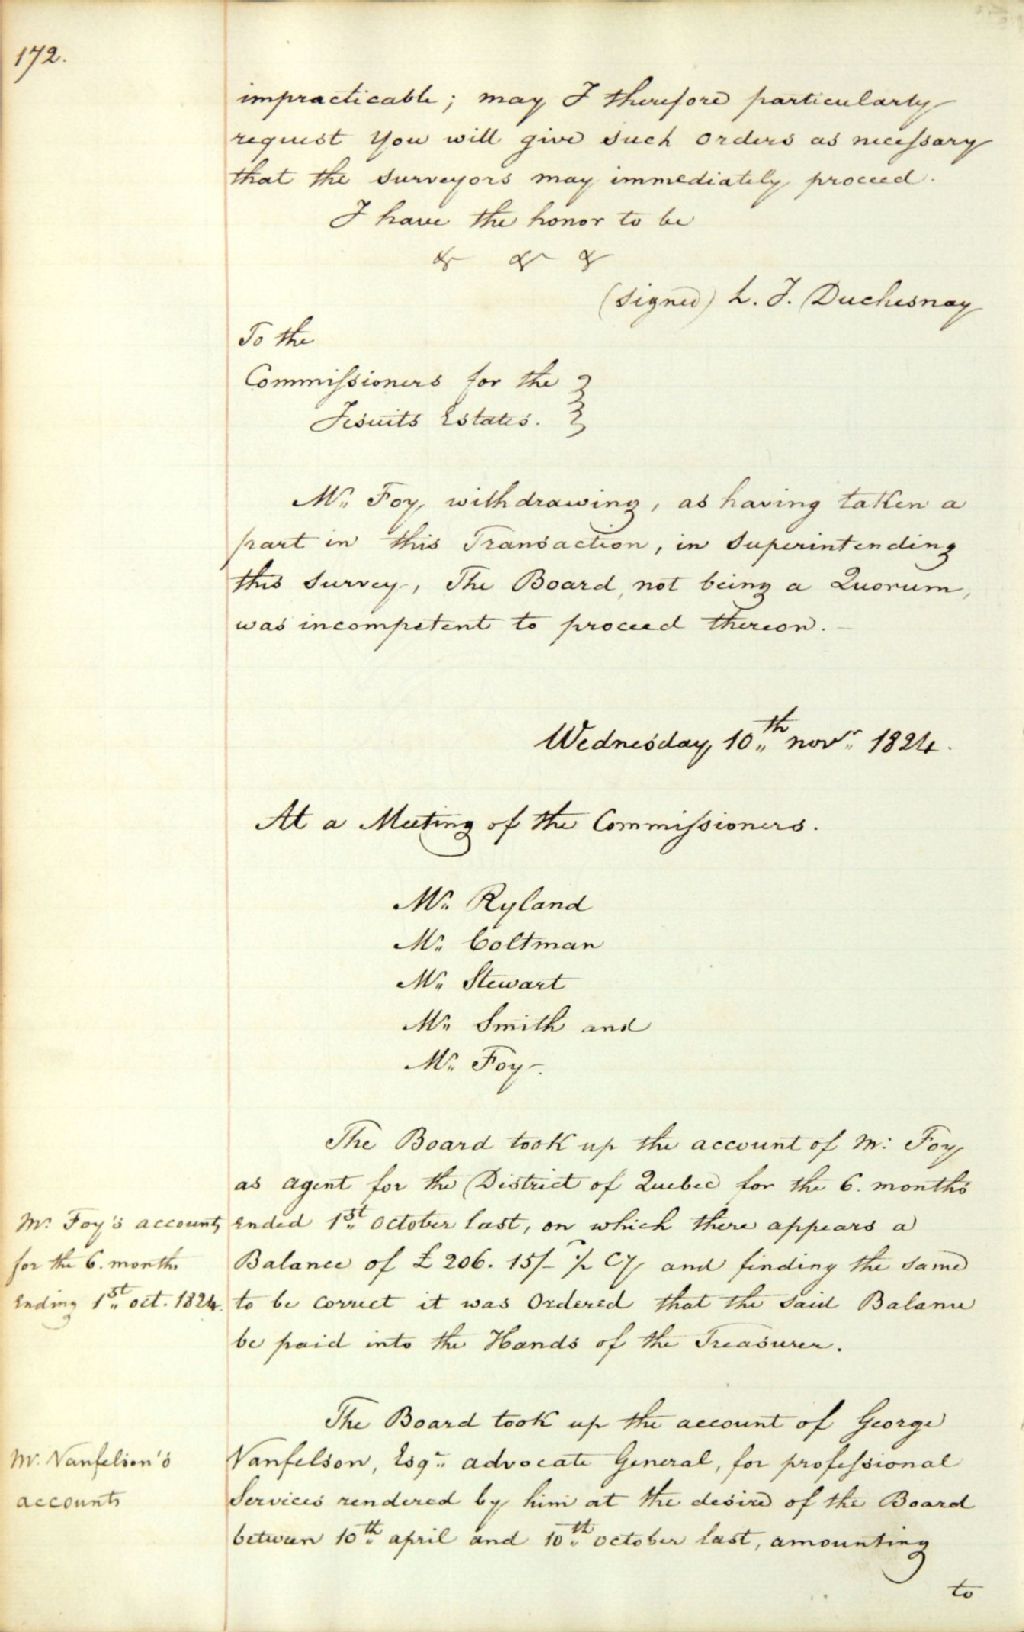 172.
impracticable; may I therefore particularly
request you will give such orders as necessary
that the surveyors may immediately proceed.
I have the honor to be
& & &
(signed) L. J. Duchesnay
To the
Commissioners for the
Jesuits Estates.
Mr. Foy, withdrawing, as having taken a
part in this Transaction, in superintending
this survey, The Board, not being a Quorum,
was incompetent to proceed thereon.
Wednesday, 10th novr. 1824.
At a Meeting of the Commissioners.
Mr. Ryland
Mr. Coltman
Mr. Stewart
Mr. Smith and
Mr. Foy.
The Board took up the account of Mr. Foy
as agent for the District of Quebec for the 6. months
Mr. Foy's accounts
for the 6. months
Ending 1st. oct. 1824.
Ended 1st October last, on which there appears a
Balance of £206. 15/- Cy and finding the same
to be correct it was Ordered that the said Balance
be paid into the Hands of the Treasurer.
The Board took up the account of George
Mr. Vanfelson's
accounts
Vanfelson, Esqr. advocate General, for professional
Services rendered by him at the desire of the Board
between 10th. april and 10th. October last, amounting
to